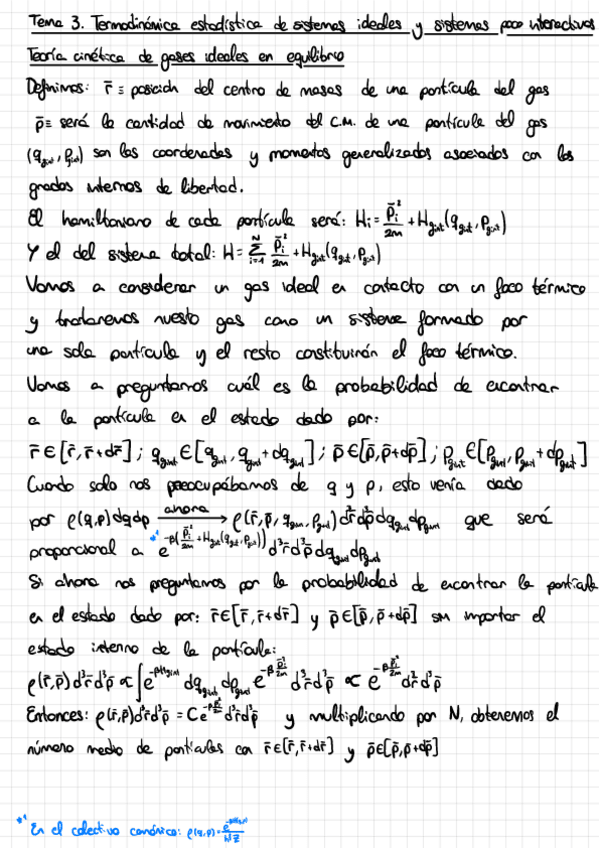 Tema 3. Termodinámica estadística de sistemas ideales y sistemas poco interactivos
Teoría cinética de gases ideales en equilibrio
Definimos: r̄ ≡ posición del centro de masas de una partícula del gas
p̄ ≡ será la cantidad de movimiento del C.M. de una partícula del gas
(q_gint, p_gint) son las coordenadas y momentos generalizados asociados con los
grados internos de libertad.
El hamiltoniano de cada partícula será: Hi = p̄i²/2m + H_gint(q_gint, p_gint)
Y el del sistema total: H = Σ_{i=1}^{N} p̄i²/2m + H_gint(q_gint, p_gint)
Vamos a considerar un gas ideal en contacto con un foco térmico
y trataremos nuesto gas como un sistema formado por
una sola partícula y el resto constituirán el foco térmico.
Vamos a preguntarnos cuál es la probabilidad de encontrar
a la partícula en el estado dado por:
r̄ ∈ [r̄, r̄+dr̄] ; q_gint ∈ [q_gint, q_gint + dq_gint] ; p̄ ∈ [p̄, p̄+dp̄] ; p_gint ∈ [p_gint, p_gint + dp_gint]
Cuando solo nos preocupábamos de q y p, esto venía dado
por ρ(q,p)dqdp —ahora→ ρ(r̄, p̄, q_gint, p_gint) d³r̄ d³p̄ dq_gint dp_gint que será
proporcional a *¹ e^{-β(p̄i²/2m + H_gint(q_gint, p_gint))} d³r̄ d³p̄ dq_gint dp_gint
Si ahora nos preguntamos por la probabilidad de encontrar la partícula
en el estado dado por: r̄ ∈ [r̄, r̄+dr̄] y p̄ ∈ [p̄, p̄+dp̄] sin importar el
estado interno de la partícula:
ρ(r̄,p̄) d³r̄ d³p̄ ∝ ∫ e^{-βH_gint} dq_gint dp_gint e^{-β p̄i²/2m} d³r̄ d³p̄ ∝ e^{-β p̄i²/2m} d³r̄ d³p̄
Entonces: ρ(r̄,p̄) d³r̄ d³p̄ = C e^{-β p̄²/2m} d³r̄ d³p̄ y multiplicando por N, obtenemos el
número medio de partículas con r̄ ∈ [r̄, r̄+dr̄] y p̄ ∈ [p̄, p̄+dp̄]
*¹ En el colectivo canónico: ρ(q,p) = e^{-βH(q,p)}/h³Z